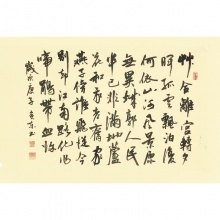 艸合離宮轉夕
暉孤雲飄泊復
何依山河風景原
無異城郭人民
半已非滿地蘆
花和我老舊家
燕子傍誰飛從今
別却江南路化作
啼鵑帶血歸
歲次庚子